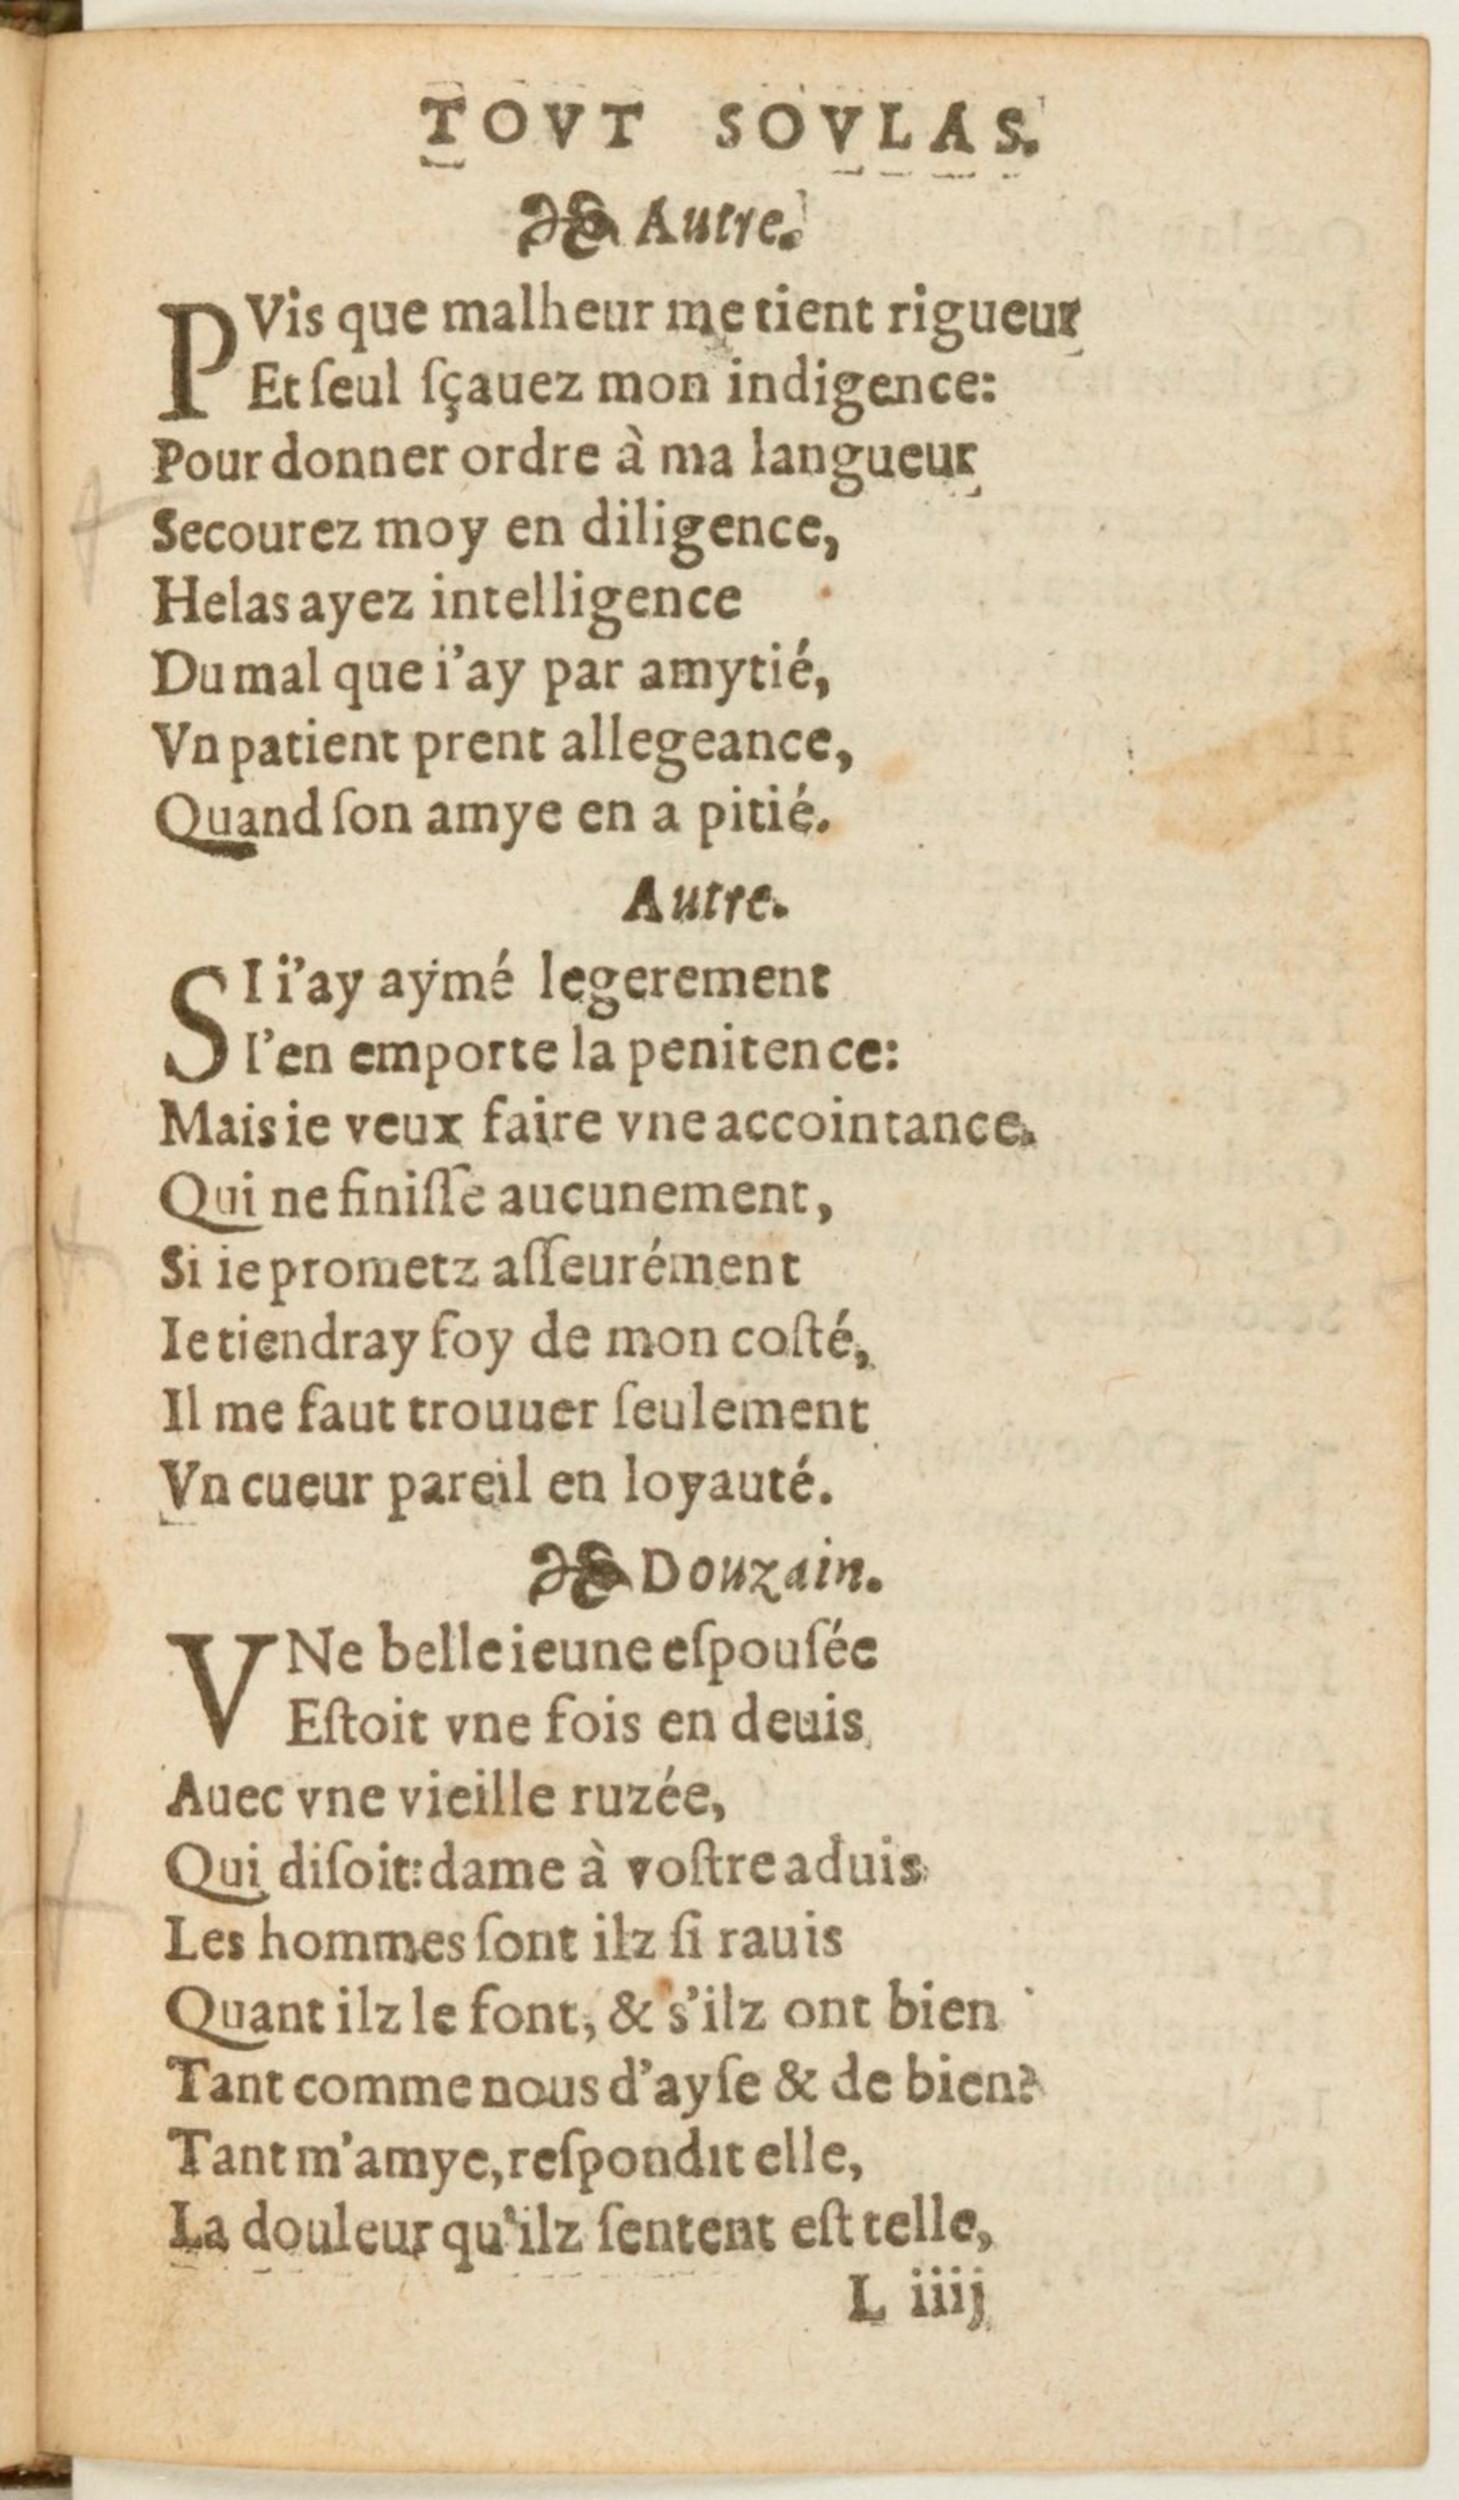 TOVT SOVLAS.
Autre.
PVis que malheur me tient rigueur
Et ſeul ſçauez mon indigence:
Pour donner ordre à ma langueur
Secourez moy en diligence,
Helas ayez intelligence
Du mal que i'ay par amytié,
Vn patient prent allegeance,
Quand ſon amye en a pitié.
Autre.
SI i'ay aymé legerement
I'en emporte la penitence:
Mais ie veux faire vne accointance.
Qui ne finiſſe aucunement,
Si ie prometz aſſeurément
Ie tiendray foy de mon coſté,
Il me faut trouuer ſeulement
Vn cueur pareil en loyauté.
Douzain.
VNe belle ieune eſpouſée
Eſtoit vne fois en deuis
Auec vne vieille ruzée,
Qui diſoit: dame à voſtre aduis
Les hommes ſont ilz ſi rauis
Quant ilz le font, & s'ilz ont bien
Tant comme nous d'ayſe & de bien?
Tant m'amye, reſpondit elle,
La douleur qu'ilz ſentent eſt telle,
L iiij